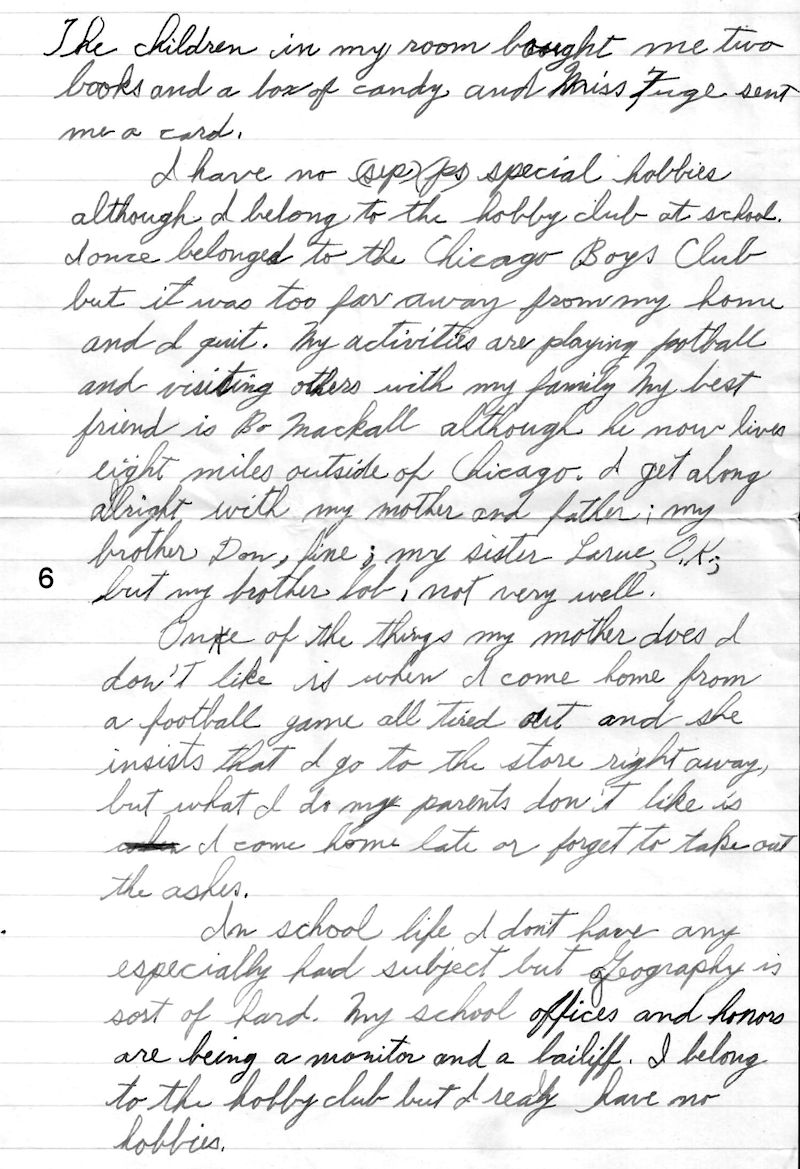 The children in my room bought me two
books and a box of candy and Miss Fuge sent
me a card.
I have no (sep) (ps) special hobbies
although I belong to the hobby club at school.
I once belonged to the Chicago Boys Club
but it was too far away from my home
and I quit. My activities are playing football
and visiting others with my family My best
friend is Bo Mackall although he now lives
eight miles outside of Chicago. I get along
alright with my mother and father; my
brother Don, fine; my sister Larue, O.K;
6
but my brother bob, not very well.
One of the things my mother does I
don't like is when I come home from
a football game all tired out and she
insists that I go to the store right away,
but what I do my parents don't like is
when I come home late or forget to take out
the ashes.
In school life I don't have any
especially hard subject but geography is
sort of hard. My school offices and honors
are being a monitor and a bailiff. I belong
to the hobby club but I realy have no
hobbies.